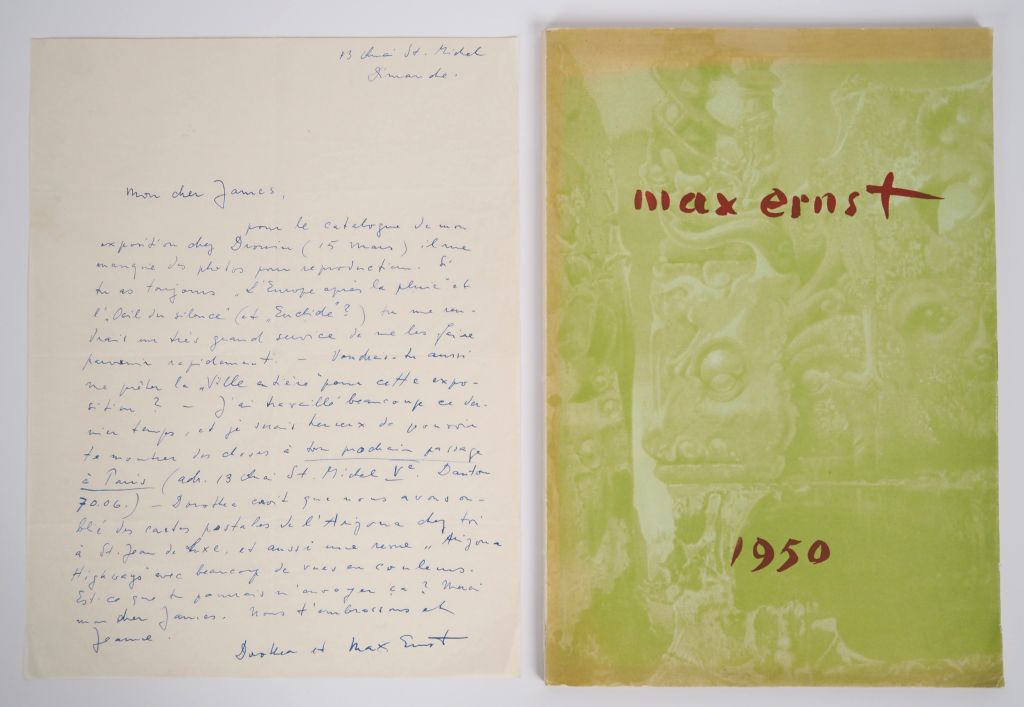 13 Quai St. Michel
Dimanche.
Mon cher James,
pour le catalogue de mon
exposition chez Drouin (15 Mars) il me
manque des photos pour reproduction. Si
tu as toujours „L'Europe après la pluie" et
l'„Oeil du silence" (et „Euclide"?) tu me ren-
drais un très grand service de me les faire
parvenir rapidement. – Voudrais-tu aussi
me prêter la „Ville entière" pour cette expo-
sition ? – J'ai travaillé beaucoup ce der-
nier temps, et je serais heureux de pouvoir
te montrer des choses à ton prochain passage
à Paris (adr. 13 Quai St. Michel Ve. Danton
70.06.) – Dorothea croit que nous avons ou-
blié des cartes postales de l'Arizona chez toi
à St. Jean de Luxe, et aussi une revue „Arizona
Highways" avec beaucoup de vues en couleurs.
Est-ce que tu pourrais m'envoyer ça ? Merci
mon cher James. Nous t'embrassons et
Jeanne.
Dorothea et Max Ernst
max ernst
1950